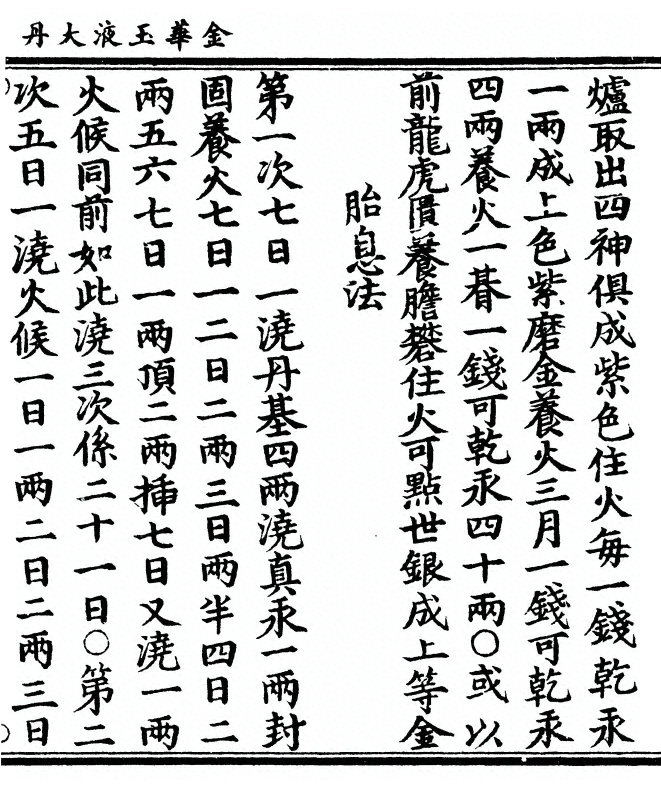 金華玉液大丹
爐取出四神俱成紫色住火每一錢乾汞
一兩成上色紫磨金養火三月一錢可乾汞
四兩養火一朞一錢可乾汞四十兩○或以
前龍虎匱養膽礬住火可點世銀成上等金
胎息法
第一次七日一澆丹基四兩澆真汞一兩封
固養火七日一二日二兩三日兩半四日二
兩五六七日一兩頂二兩揷七日又澆一兩
火候同前如此澆三次係二十一日○第二
次五日一澆火候一日一兩二日二兩三日